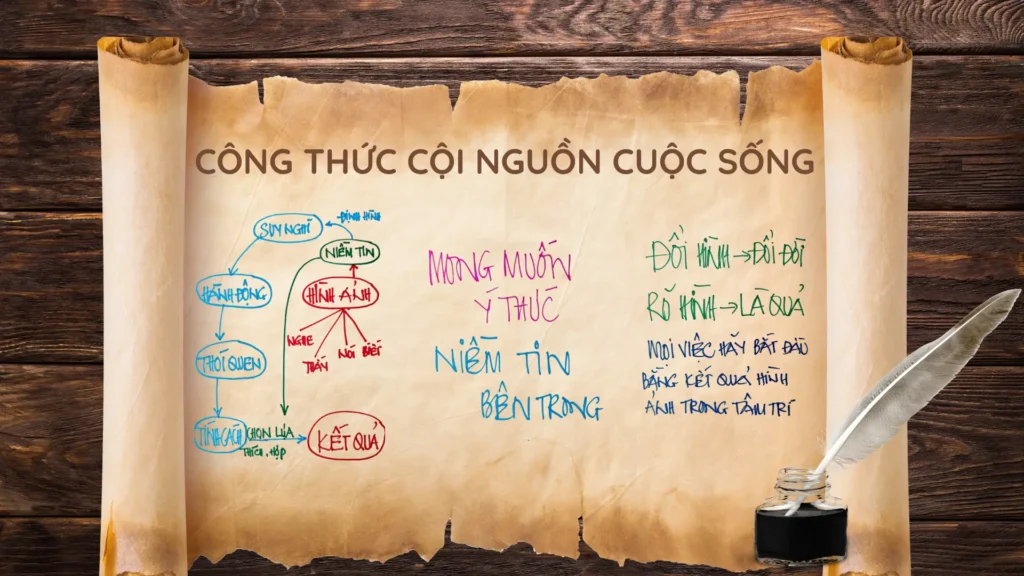 CÔNG THỨC CỘI NGUỒN CUỘC SỐNG
SUY NGHĨ
ĐỊNH HÌNH
NIỀM TIN
HÀNH ĐỘNG
HÌNH ẢNH
NGHE
THẤY
NÓI
BIẾT
THÓI QUEN
TÍNH CÁCH
CHỌN LỰA
THÍCH, HỢP
KẾT QUẢ
MONG MUỐN
Ý THỨC
NIỀM TIN
BÊN TRONG
ĐỔI HÌNH → ĐỔI ĐỜI
RÕ HÌNH → LÀ QUẢ
MỌI VIỆC HÃY BẮT ĐẦU
BẰNG KẾT QUẢ HÌNH
ẢNH TRONG TÂM TRÍ